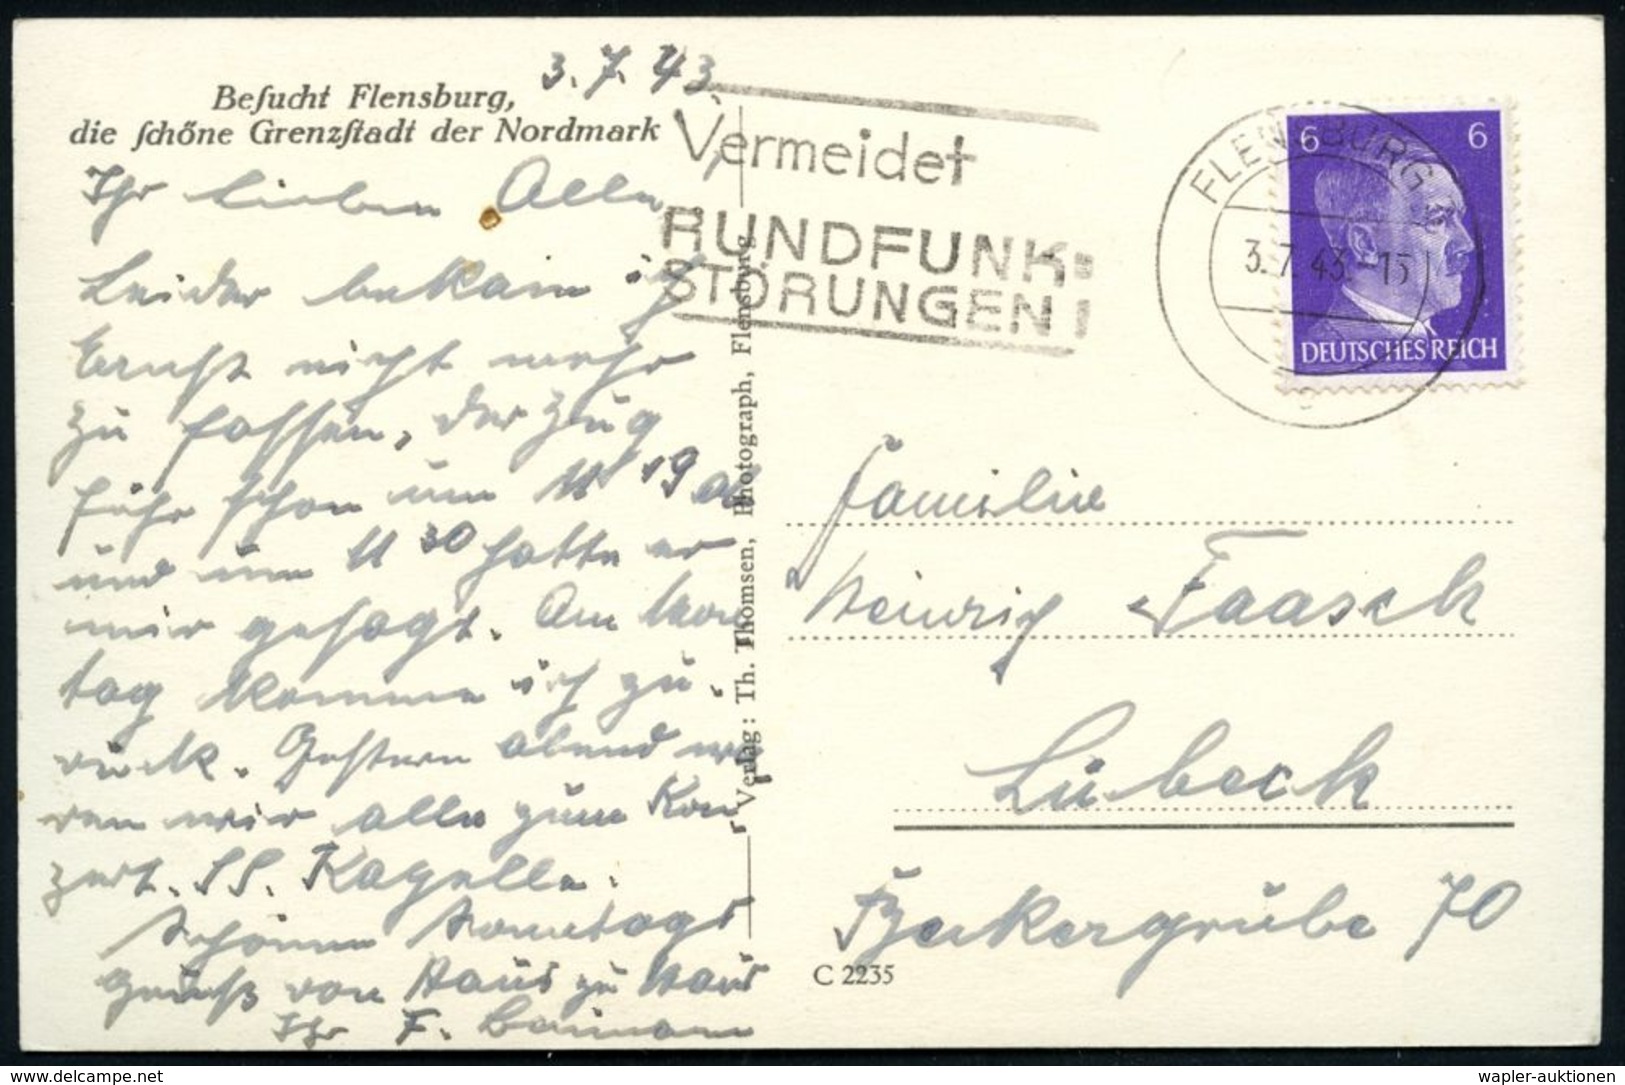 3.7.43.
Beſucht Flensburg,
die ſchöne Grenzſtadt der Nordmark
Ihr lieben Alle,
Leider bekam ich
Ernst nicht mehr
zu fassen, der Zug
fuhr schon um 11 19 ab
und um 11 30 hatte er
mir gesagt. Am Mon
tag komme ich zu-
rück. Gestern abend wa
ren wir alle zum Kon
zert. SS. Kapelle.
Schönen Sonntags
gruß von Haus zu Haus
Ihr F.
Verlag: Th. Thomsen, Photograph, Flensburg
Vermeidet
RUNDFUNK-
STÖRUNGEN!
FLENSBURG
3.7.43.-15
6 6
DEUTSCHES REICH
Familie
Heinrich Faasch
Lübeck
Beckergrube 70
C 2235
delcampe.net
wapler-auktionen